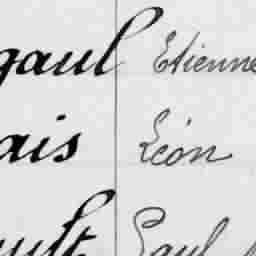 gaul Etienne
ais Léon
ult Paul